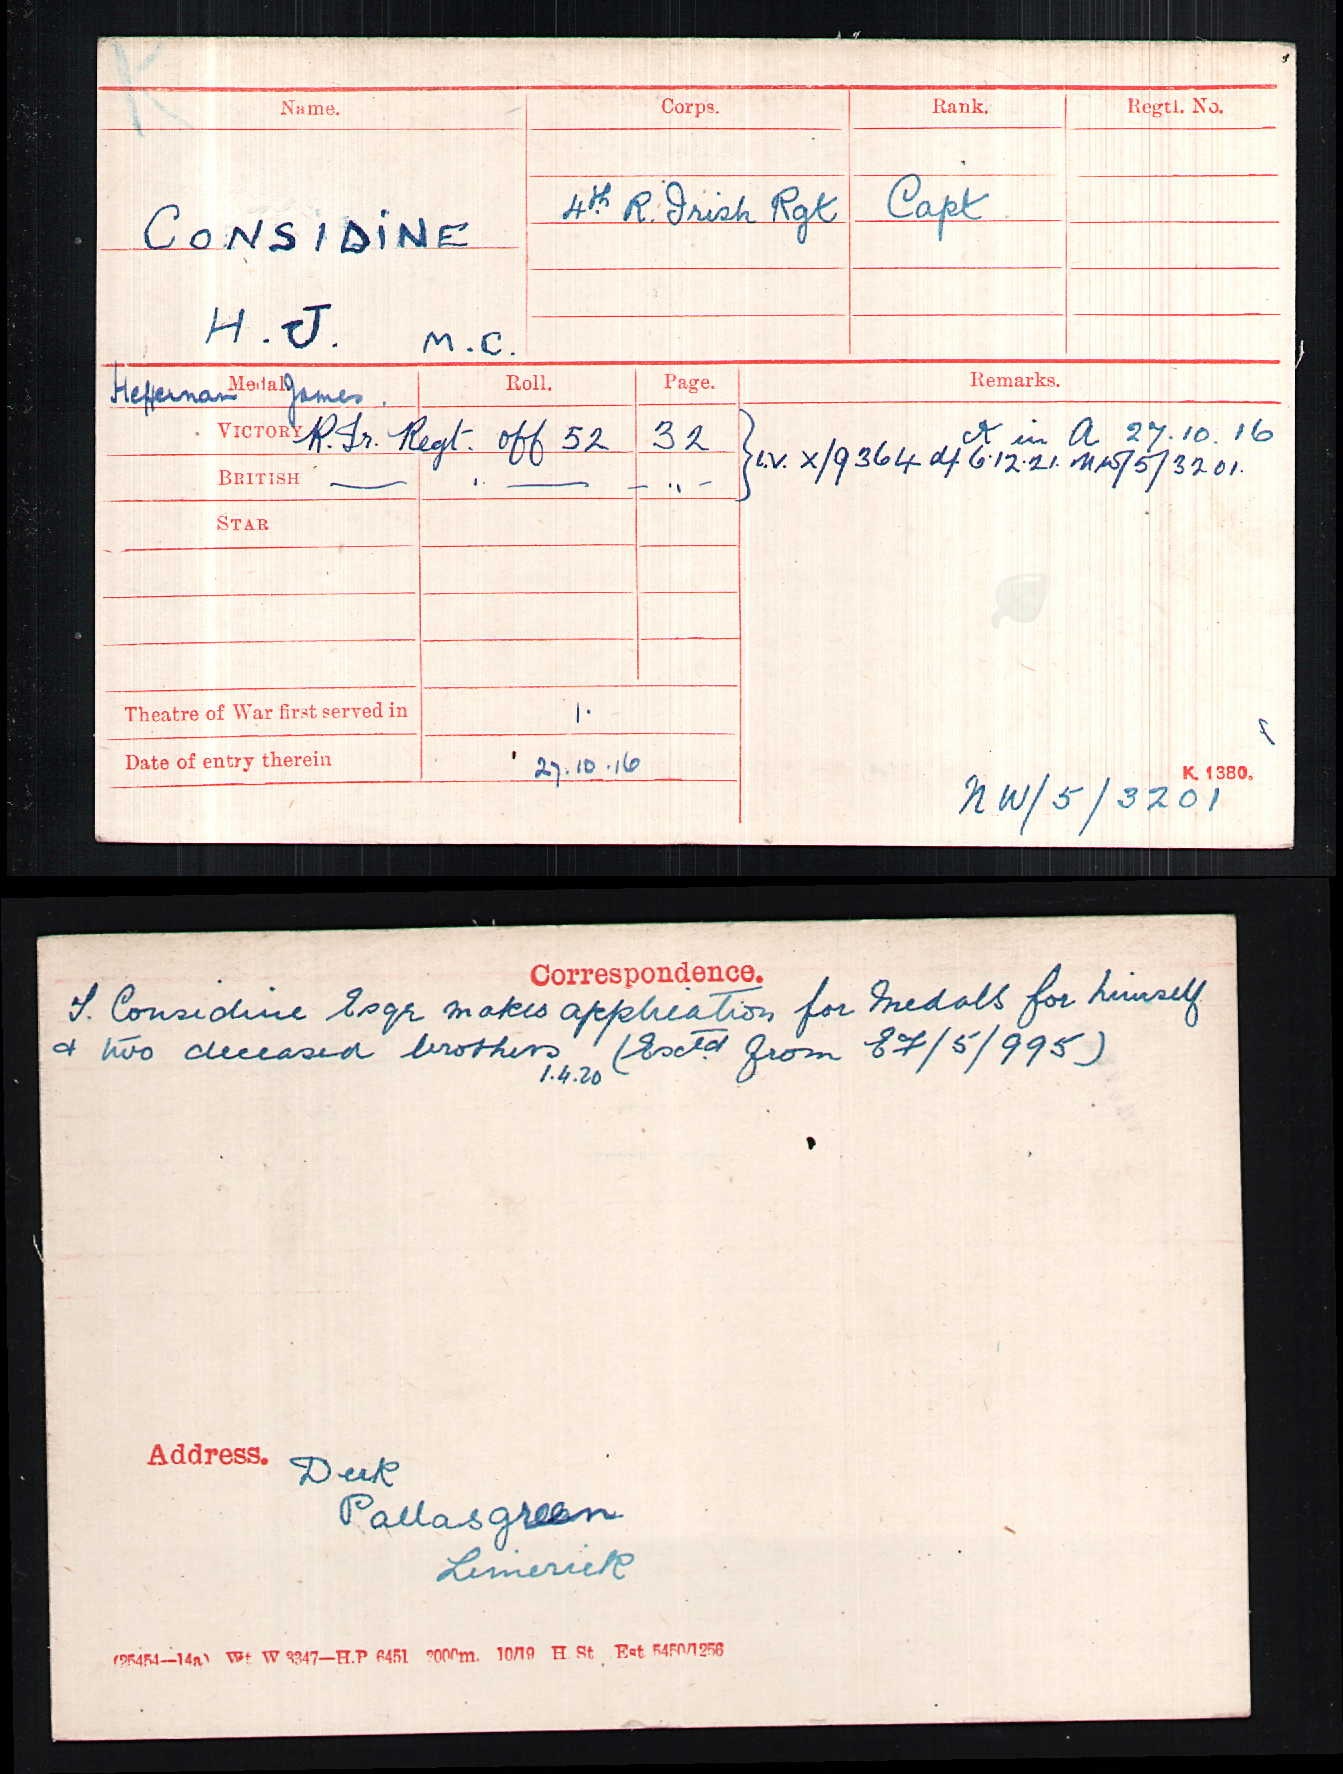 K
Name. Corps. Rank. Regtl. No.
4th R. Irish Rgt Capt
CONSIDINE
H. J. M.C.
Heffernan James.
Medal Roll. Page. Remarks.
VICTORY R. Ir. Regt. off 52 32 K in A 27.10.16
I.V. X/9364 df 6.12.21. NW/5/3201.
BRITISH — " — — " —
STAR
Theatre of War first served in 1.
Date of entry therein 27.10.16
K. 1380.
NW/5/3201
Correspondence.
T. Considine Esqr makes application for Medals for himself
& two deceased brothers (Extd from EF/5/995)
1.4.20
Address. Derk
Pallasgreen
Limerick
(25454—14a) Wt W 3347—H.P 6451 2000m. 10/19 H. St Est 5450/1256